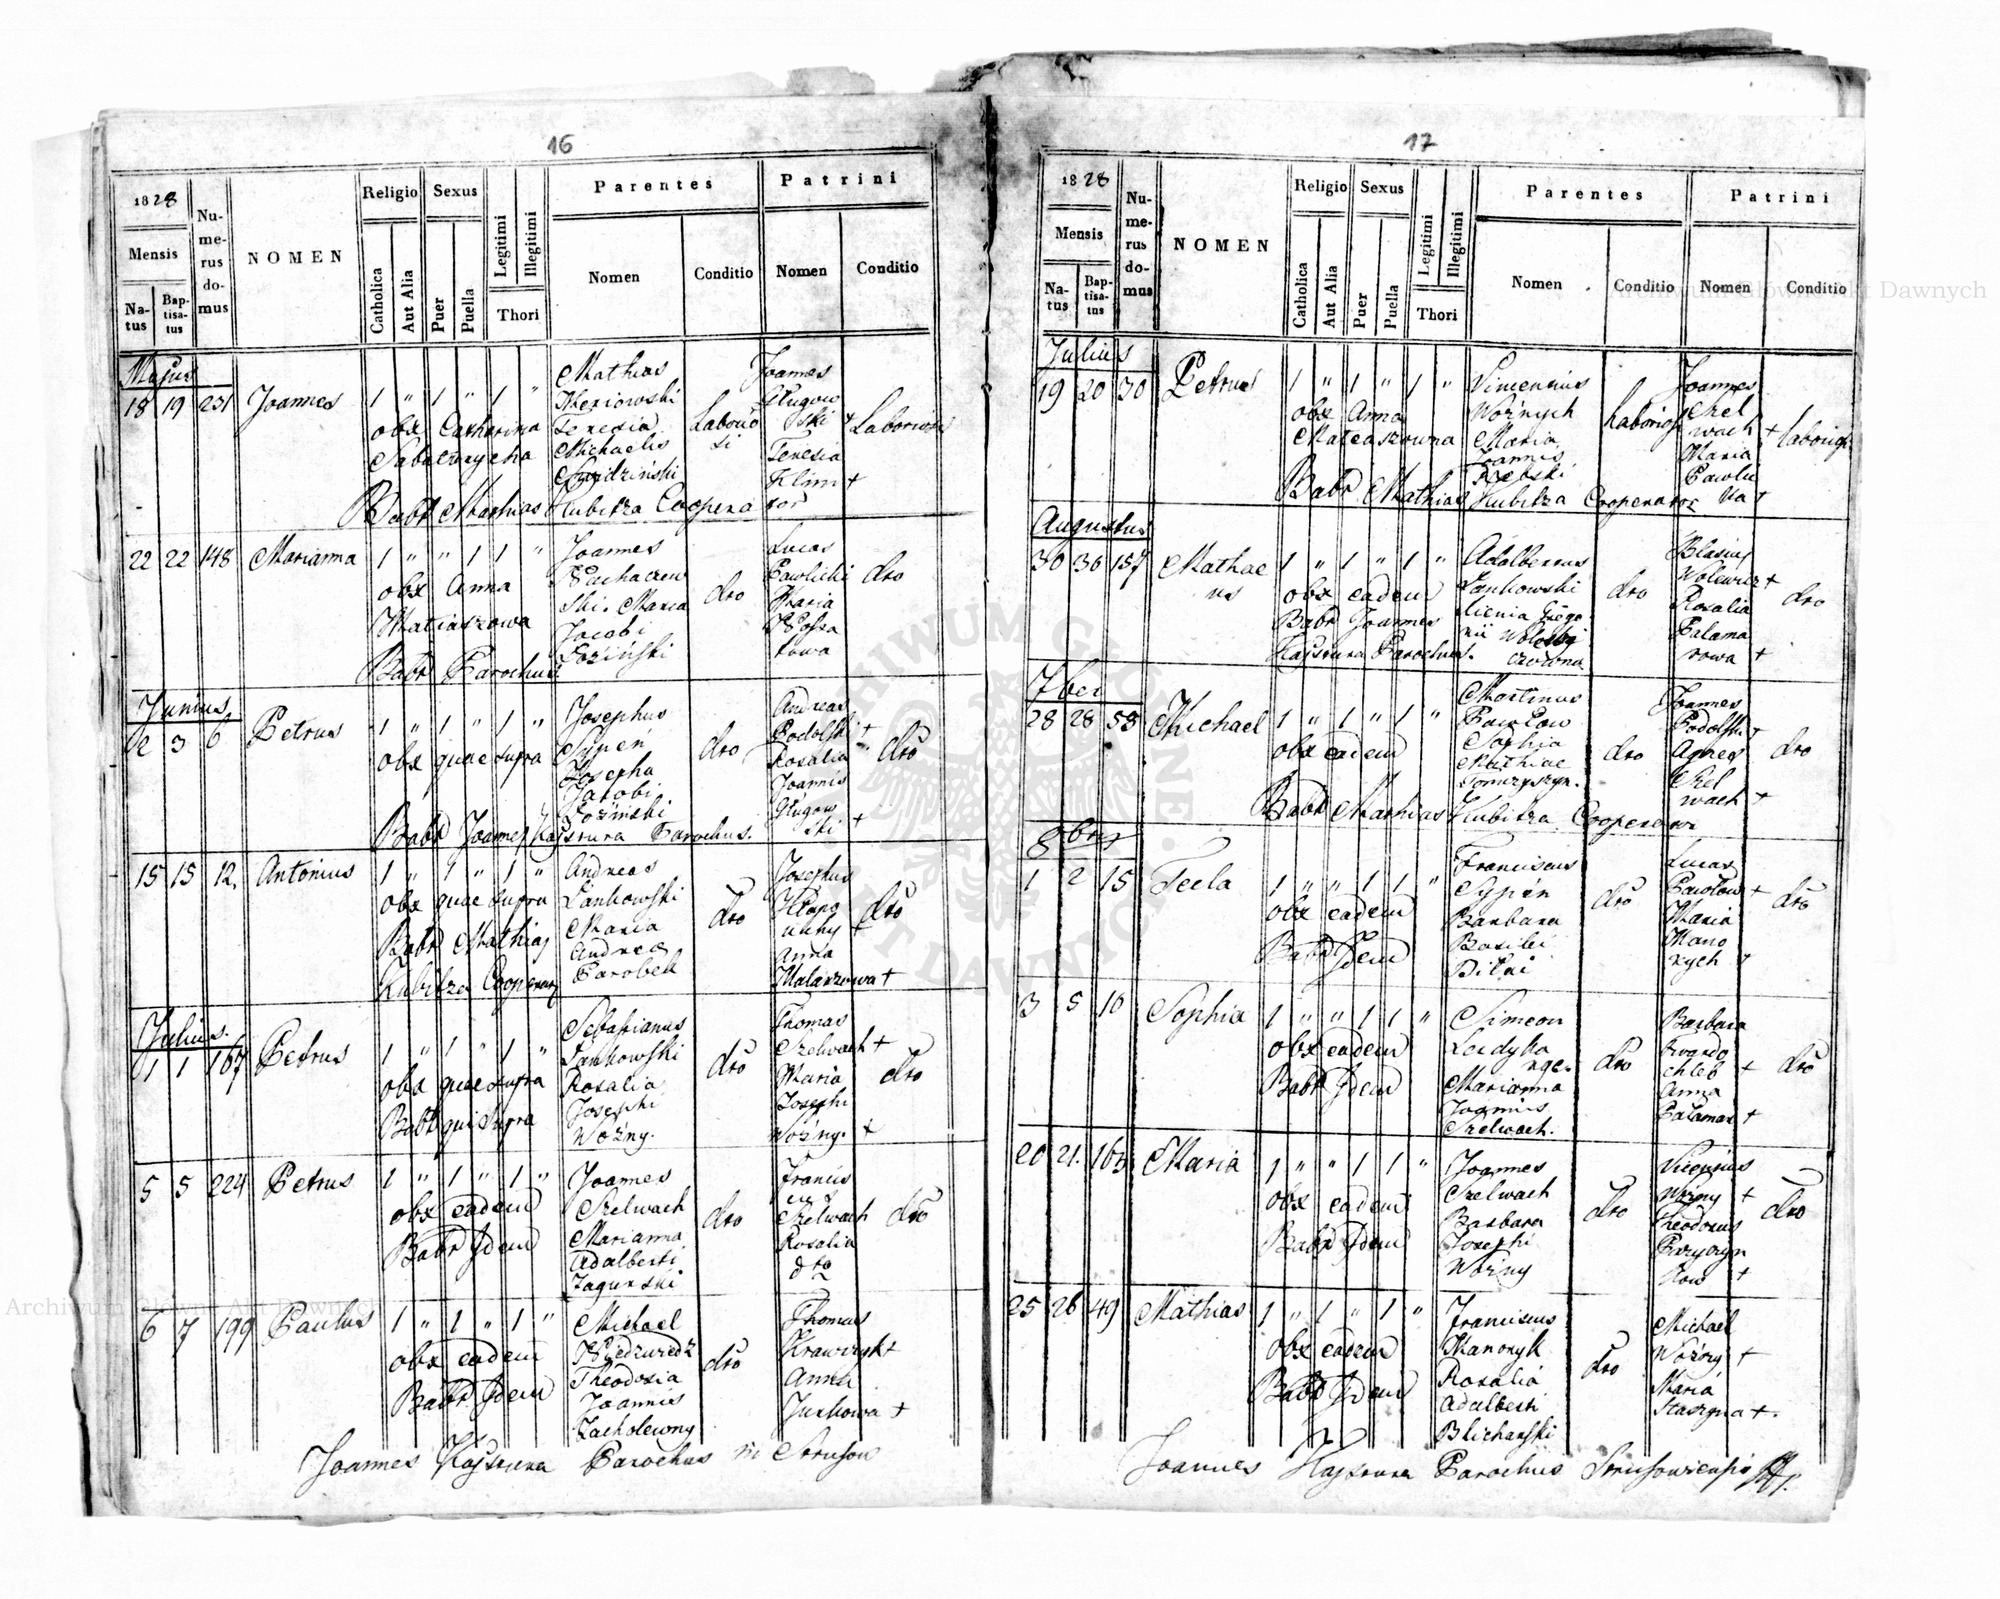 16
1828
Mensis
Natus
Baptisatus
Numerus domus
NOMEN
Religio
Catholica
Aut Alia
Sexus
Puer
Puella
Legitimi
Illegitimi
Thori
Parentes
Nomen
Conditio
Patrini
Nomen
Conditio
Majus
18 19 231 Joannes 1 " 1 " 1 "
obx Catharina
Mathias
Teresia
Michaelis
Joannes
Teresia
Babt Mathias Kubitza Cooperator
22 22 148 Marianna 1 " " 1 1 "
obx Anna
Matiaszowa
Babt Parochus
Joannes
ski. Maria
Jacobi
Łoziński
dto
Lucas
Pawlicki
Maria
dto
Junius
2 3 6 Petrus 1 " 1 " 1 "
obx quae supra
Josephus
Sypeń
Josepha
Jacobi
Łoziński
dto
Andreas
Podolski +
Rosalia
Joannis
Głogowski +
dto
Babt Joannes Kajsrura Parochus.
15 15 12 Antonius 1 " 1 " 1 "
obx quae supra
Babt Mathias
Kubitza Cooperator
Andreas
Lankowski
Maria
Andreas
Parobek
dto
Josephus
Anna
Malarzowa +
dto
Julius.
1 1 167 Petrus 1 " 1 " 1 "
obx quae supra
Babt qui supra
Sebastianus
Lankowski
Rosalia
Josephi
Woźny.
dto
Thomas
Szelwach +
Maria
Josephi
Woźny. +
dto
5 5 224 Petrus 1 " 1 " 1 "
obx eadem
Babt Idem
Joannes
Szelwach
Marianna
Adalberti
Zagurski
dto
Francis
cus
Szelwach
Rosalia
dto
dto
6 7 199 Paulus 1 " 1 " 1 "
obx eadem
Babt Idem
Michael
Niedzwedz
Theodosia
Joannis
Zacholewny
dto
Thomas
Krawczyk +
Anna
Jurkowa +
Joannes Kajsrura Parochus in Strusow
17
1828
Mensis
Natus
Baptisatus
Numerus domus
NOMEN
Religio
Catholica
Aut Alia
Sexus
Puer
Puella
Legitimi
Illegitimi
Thori
Parentes
Nomen
Conditio
Patrini
Nomen
Conditio
Julius
19 20 30 Petrus 1 " 1 " 1 "
obx Anna
Mateaszowna
Vincentius
Woźnych
Maria
Joannis
Joannes
Szel
wach +
Maria
Babt Mathias Kubitza Cooperator
Augustus
30 30 157 Mathae
us
1 " 1 " 1 "
obx eadem
Babt Joannes
Kajsrura Parochus.
Adalbertus
Lankowski
dto
Blasius
Rosalia
Palama
rowa +
dto
7ber
28 28 53 Michael 1 " 1 " 1 "
obx eadem
Martinus
Sophia
Mathiae
dto
Joannes
Podolski +
Agnes
Szel
wach +
dto
Babt Mathias Kubitza Cooperator
8bris
1 2 15 Tecla 1 " " 1 1 "
obx eadem
Babt Idem
Franciscus
Sypeń
Barbara
Basilii
dto
Lucas
Maria
dto
3 5 10 Sophia 1 " " 1 1 "
obx eadem
Babt Idem
Simeon
Marianna
Joannis
Szelwach.
dto
Barbara
Anna
Palamar +
dto
20 21. 163 Maria 1 " " 1 1 "
obx eadem
Babt Idem
Joannes
Szelwach
Barbara
Josephi
Woźny
dto
Woźny +
Theodorus
dto
25 26 49 Mathias 1 " 1 " 1 "
obx eadem
Babt Idem
Franciscus
Rosalia
Adalberti
Blicharski
dto
Michael
Woźny +
Maria
Joannes Kajsrura Parochus Strusowiensis
Archiwum Główne Akt Dawnych
ARCHIWUM GŁÓWNE AKT DAWNYCH
Archiwum Główne Akt Dawnych